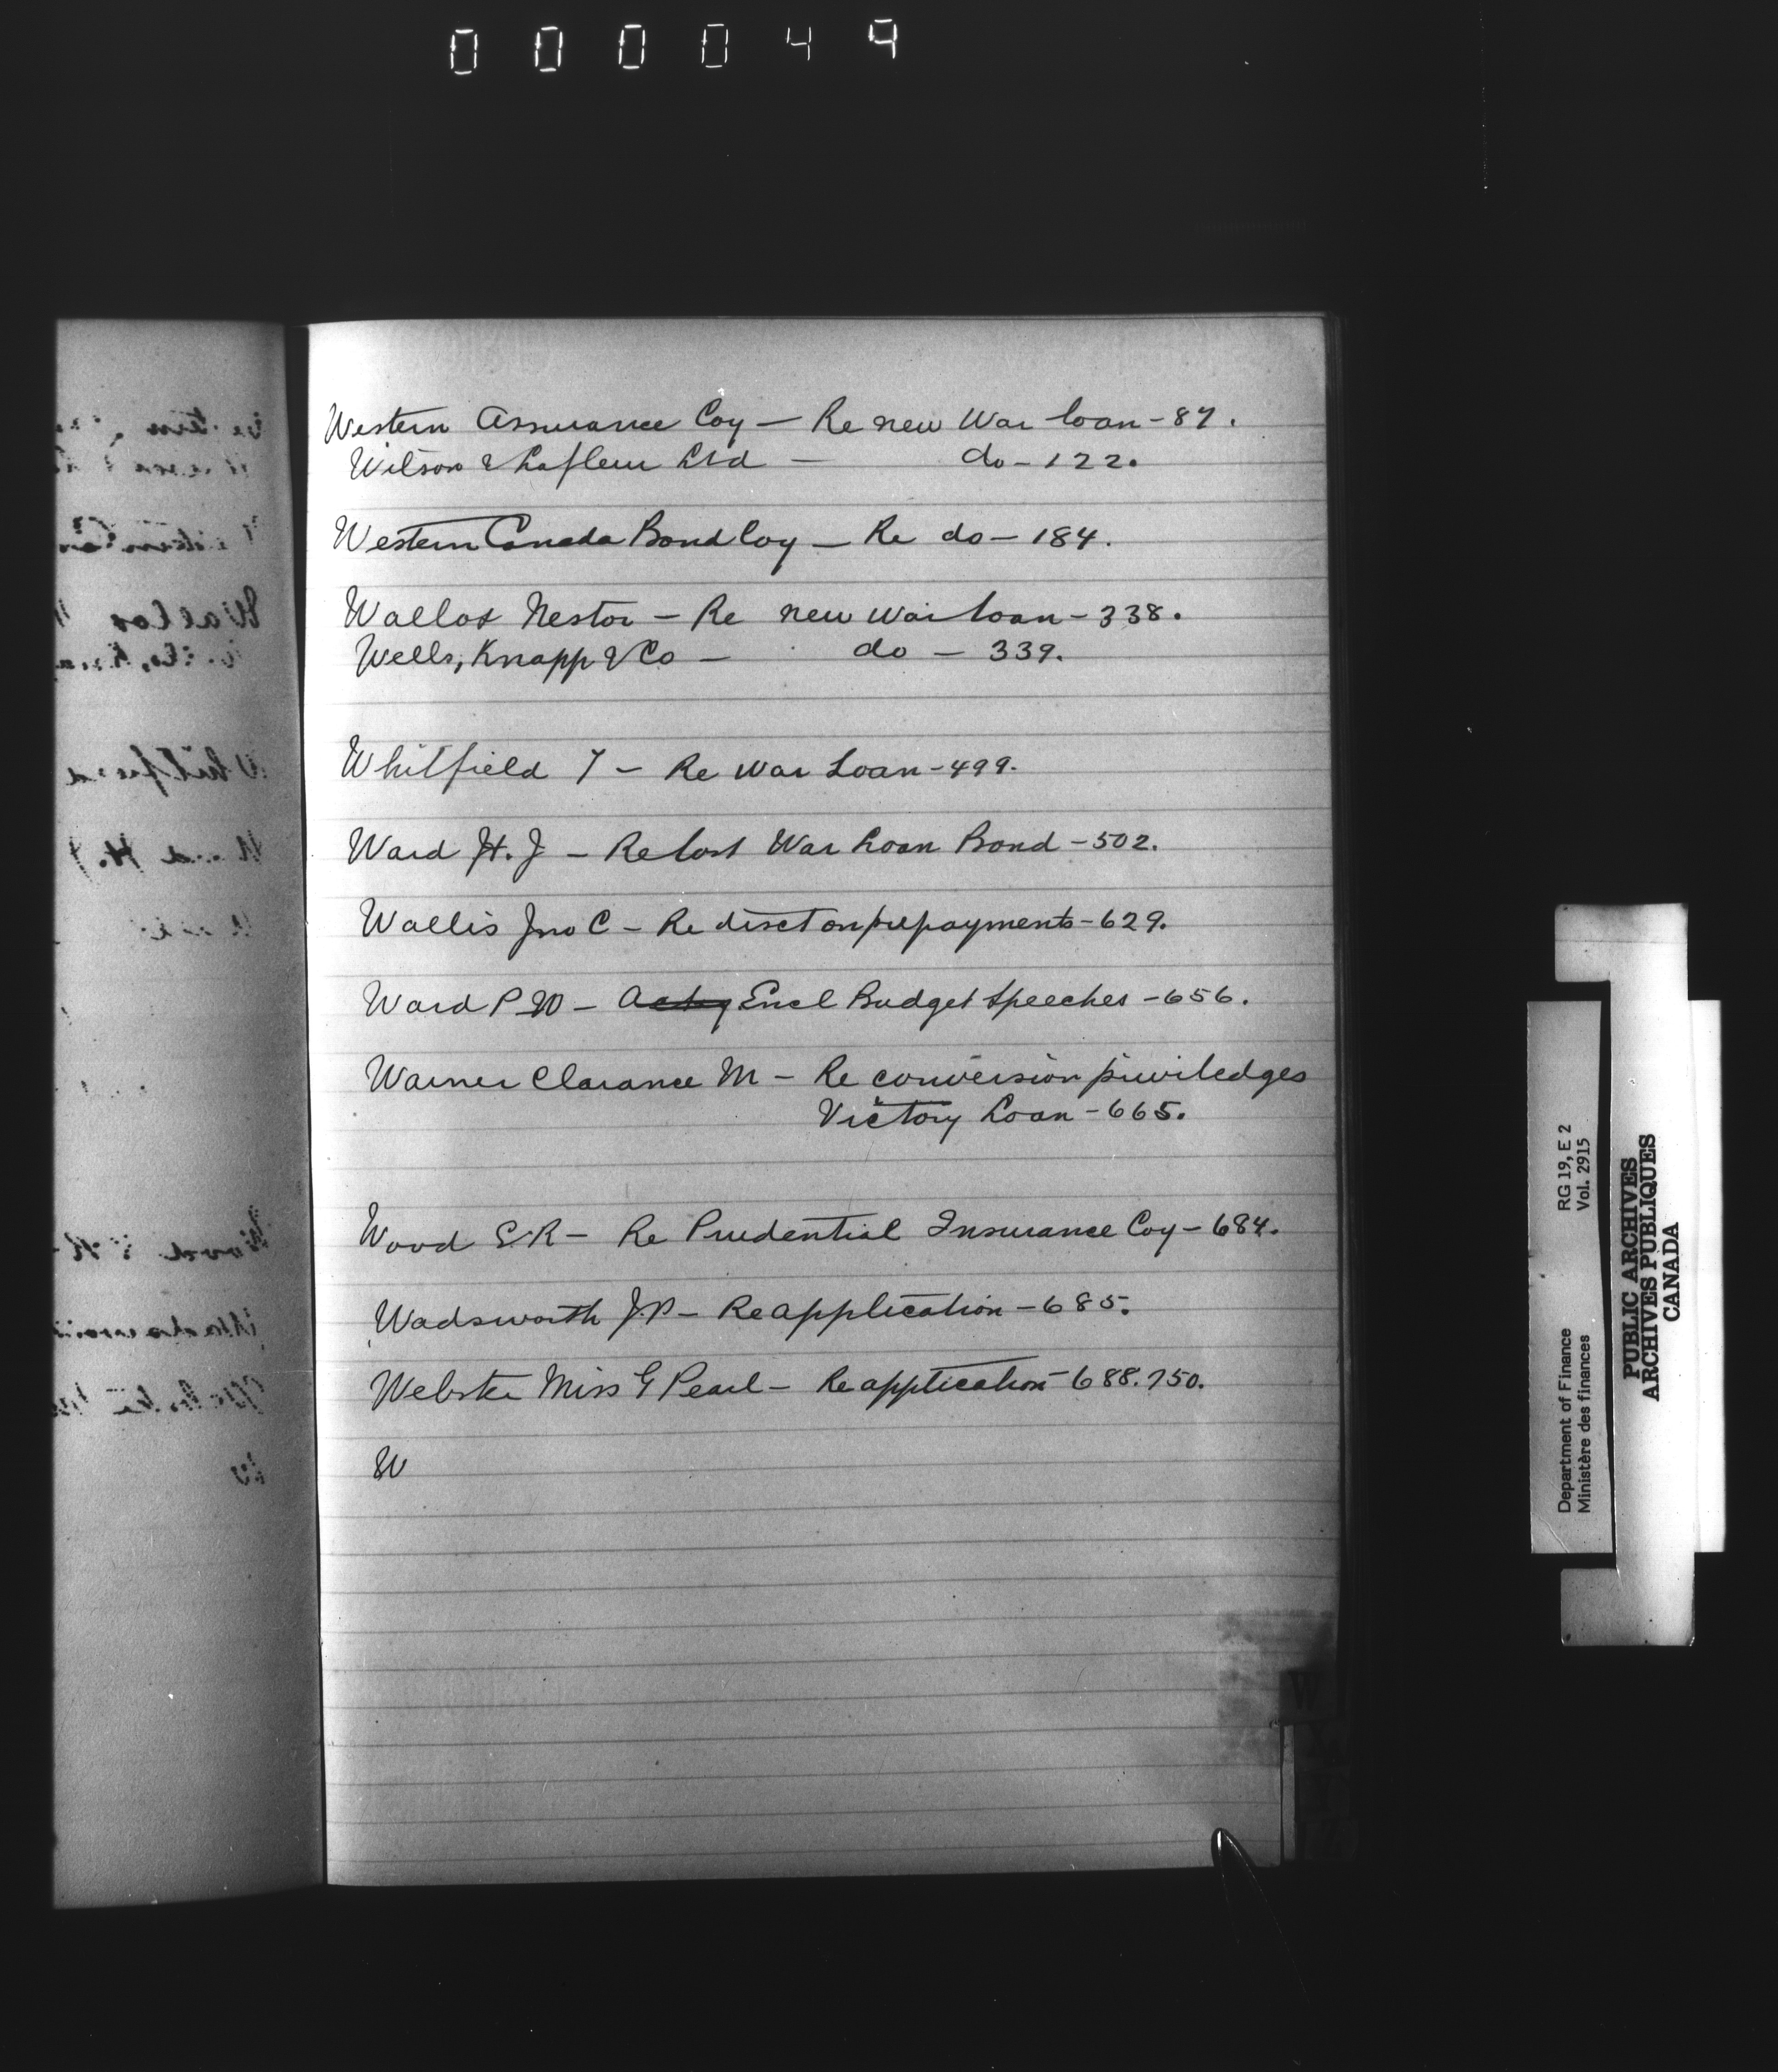 000049
Western Assurance Coy – Re new War loan – 87.
Wilson & Lafleur Ltd – do – 122.
Western Canada Bond Coy – Re do – 184.
Wallot Nestor – Re new War loan – 338.
Wells, Knapp & Co – do – 339.
Whitfield T – Re War Loan – 499.
Ward H. J – Re lost War Loan Bond – 502.
Wallis Jno C – Re disct on prepayments – 629.
Ward P W – Encl Budget Speeches – 656.
Warner Clarance M – Re conversion priviledges
Victory Loan – 665.
Wood E. R – Re Prudential Insurance Coy – 684.
Wadsworth J. P – Re application – 685.
Webster Miss G Pearl – Re application – 688. 750.
W
W
Department of Finance RG 19, E 2
Ministère des finances Vol. 2915
PUBLIC ARCHIVES
ARCHIVES PUBLIQUES
CANADA